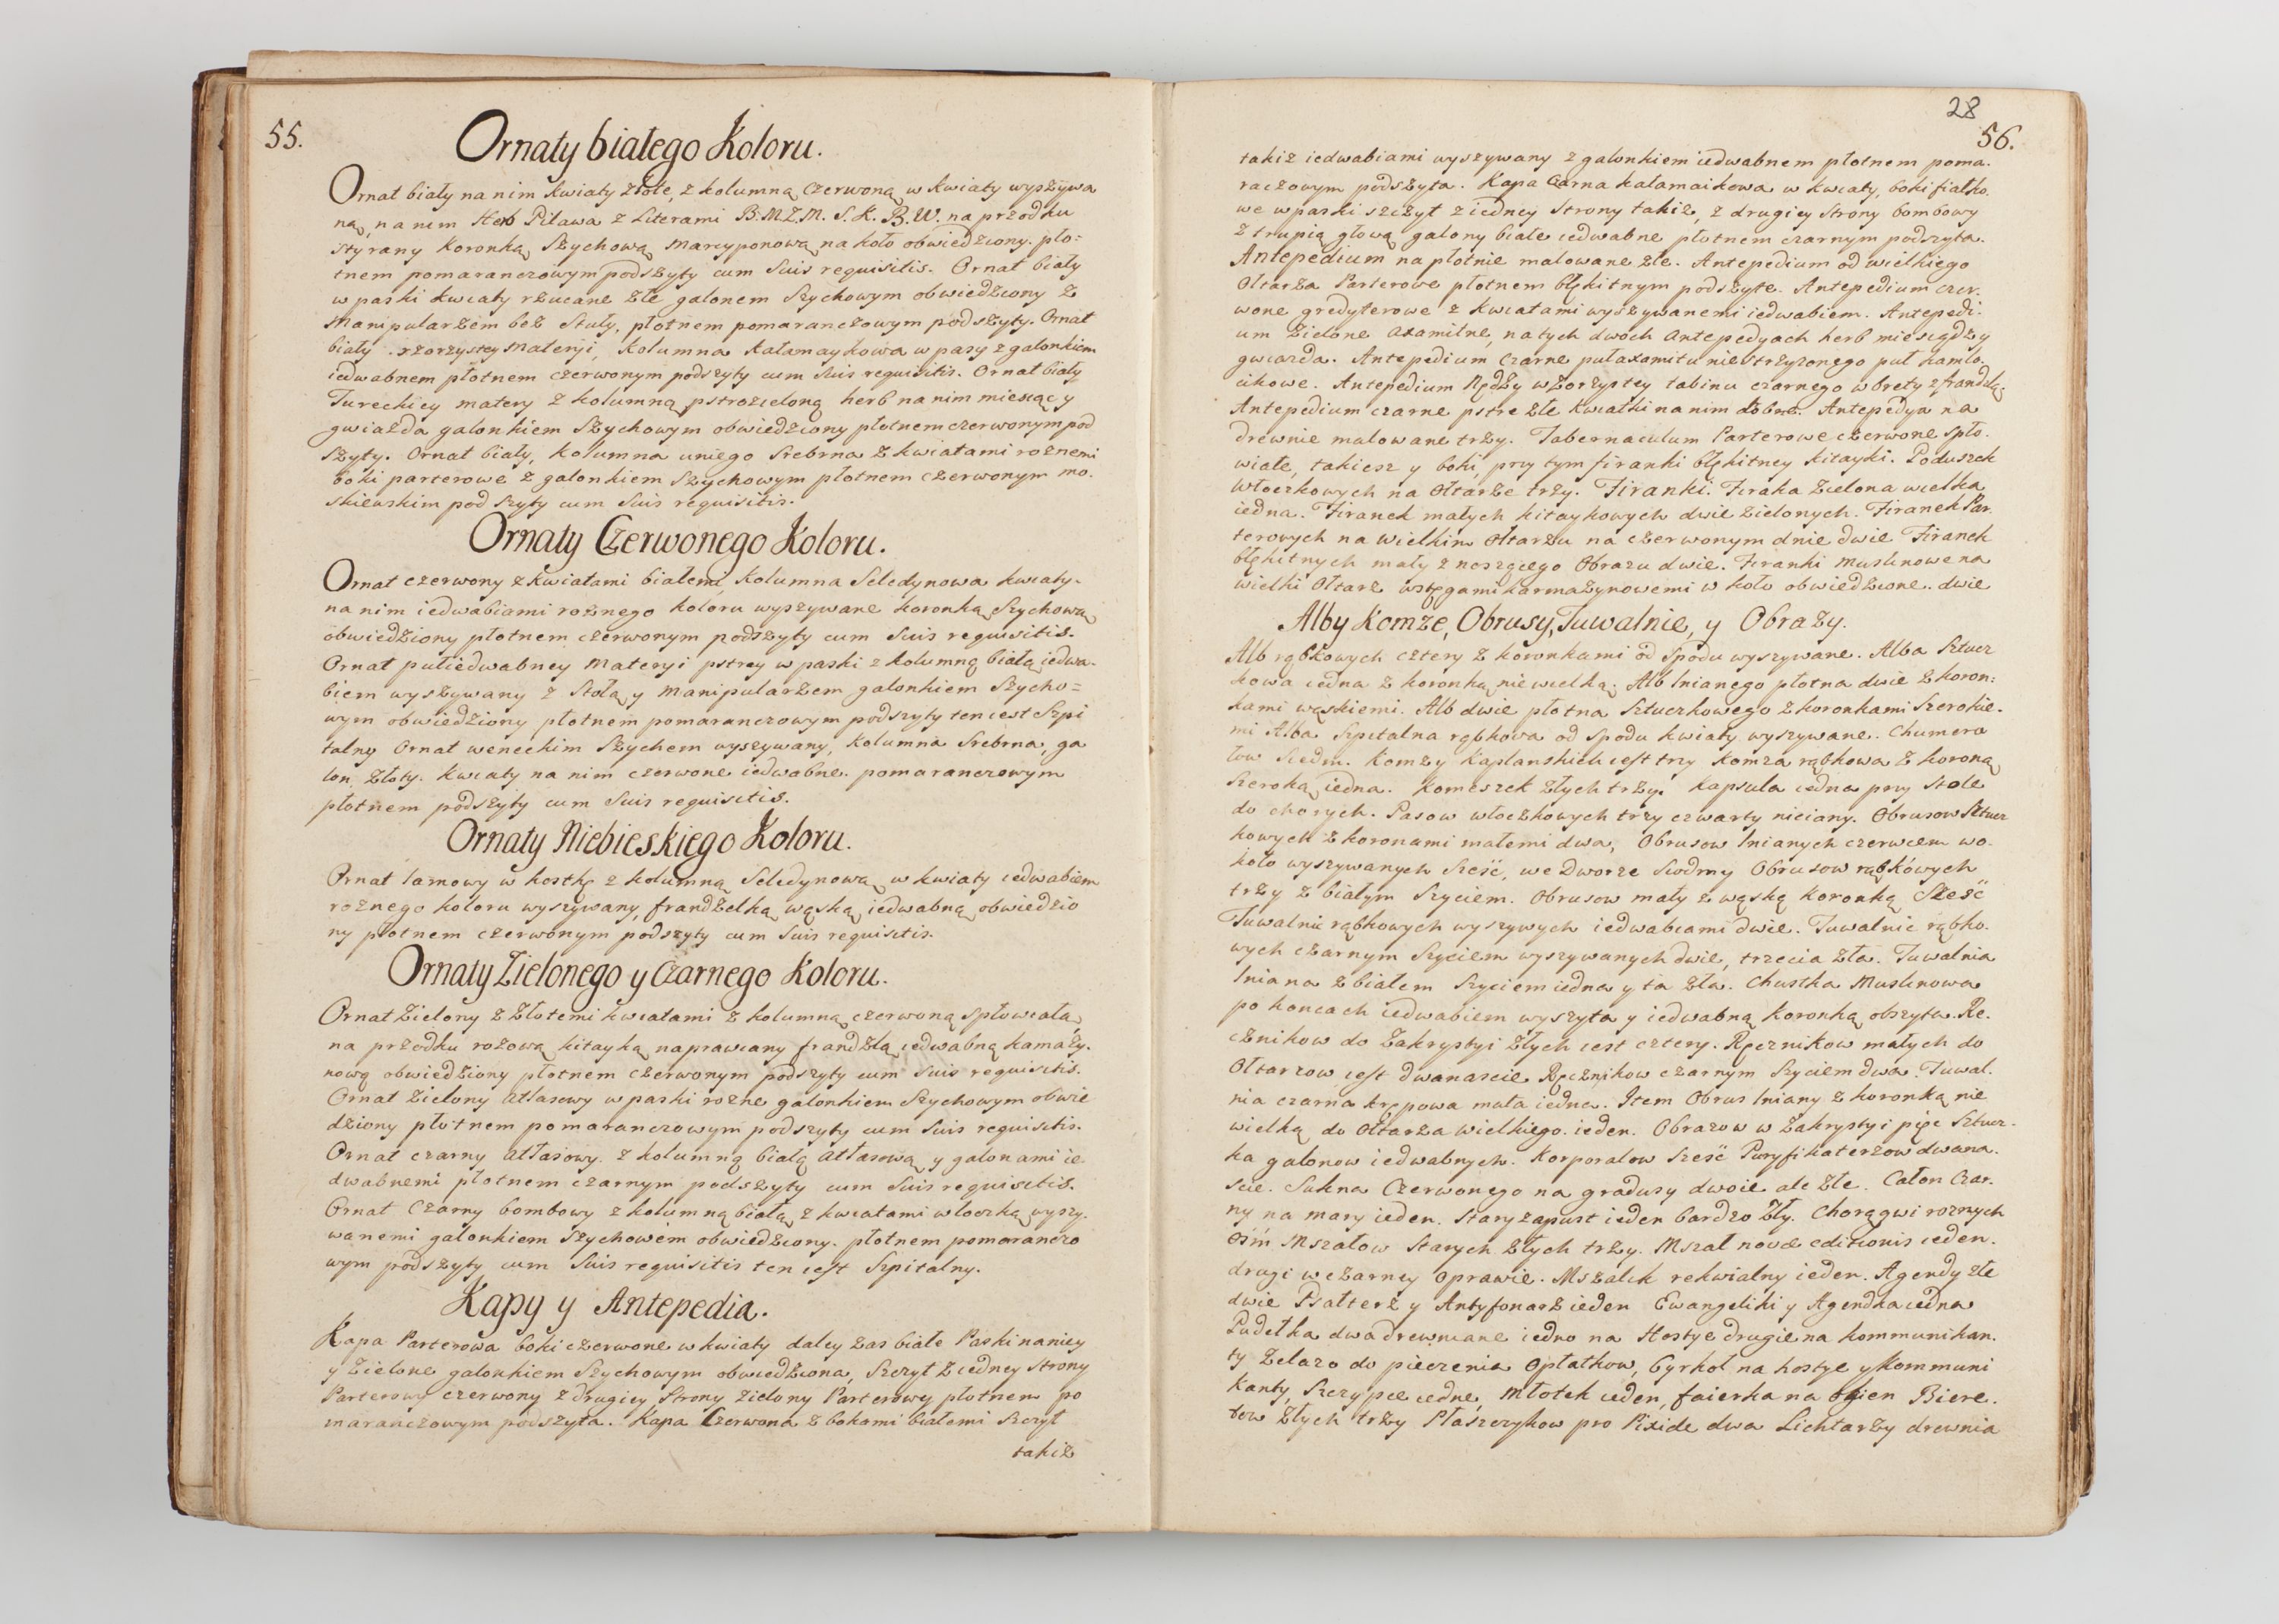 55.
Ornaty białego Koloru.
Ornat biały na nim kwiaty złote, z kolumną czerwoną w kwiaty wyszywa
ną, na nim Herb Pilawa z Literami B.M.Z.M. S.K.B.W. na przodku
styrany Koronką Szychową Marcyponową na koło obwiedziony. pło:
tnem pomaranczowym podszyty cum suis requisitis. Ornat biały
w paski kwiaty rzucane złe galonem Szychowym obwiedziony z
Manipularzem bez Stuły, płotnem pomaranczowym podszyty. Ornat
biały wzorzystey Materyi, Kolumna Kałamaykowa w pasy z galonkiem
iedwabnem płotnem czerwonym podszyty cum suis requisitis. Ornat biały
Tureckiey matery z kolumną pstrozieloną herb na nim miesiąc y
gwiazda galonkiem Szychowym obwiedziony płotnem czerwonym pod
szyty. Ornat biały, kolumna u niego Srebrna z kwiatami roznemi
boki parterowe z galonkiem Szychowym płotnem czerwonym mo.
skiewskim pod szyty cum suis requisitis.
Ornaty Czerwonego Koloru.
Ornat czerwony z kwiatami białemi, Kolumna Seledynowa kwiaty.
na nim iedwabiami roznego koloru wyszywane koronką Szychową
obwiedziony płotnem czerwonym podszyty cum suis requisitis.
Ornat pułiedwabney Materyi pstrey w paski z kolumną białą iedwa.
biem wyszywany z Stołą y Manipularzem galonkiem Szycho=
wym obwiedziony płotnem pomaranczowym podszyty ten iest Szpi
talny Ornat weneckim Szychem wyszywany, Kolumna Srebrna, ga
lon złoty. kwiaty na nim czerwone iedwabne. pomaranczowym
płotnem podszyty cum suis requisitis.
Ornaty Niebieskiego Koloru.
Ornat lamowy w kostkę z kolumną Seledynową w kwiaty iedwabiem
roznego koloru wyszywany frandzelką wąską iedwabną obwiedzio
ny płotnem czerwonym podszyty cum suis requisitis.
Ornaty Zielonego y Czarnego Koloru.
Ornat Zielony z złotemi kwiatami z kolumną czerwoną spłowiała,
na przodku rożową kitayką naprawiany frandzlą iedwabną kamazy.
nową obwiedziony płotnem czerwonym podszyty cum suis requisitis.
Ornat Zielony atłasowy w paski rozne galonkiem Szychowym obwie
dziony płotnem pomaranczowym podszyty cum suis requisitis.
Ornat czarny atłasowy. z kolumną białą atłasową y galonami ie.
dwabnemi płotnem czarnym podszyty cum suis requisitis.
Ornat Czarny bombowy z kolumną białą, z kwiatami włoczką wyszy.
wanemi galonkiem Szychowem obwiedziony. płotnem pomaranczo
wym podszyty cum suis requisitis ten iest Szpitalny.
Kapy y Antepedia.
Kapa Parterowa boki czerwone w kwiaty daley zas białe Paski na niey
y Zielone galonkiem Szychowym obwiedziona, Szczyt z iedney strony
Parterowy czerwony z drugiey Strony zielony Parterowy płotnem po
maranczowym podszyta. Kapa Czerwona z bokami białemi Szczyt
takiż
28
56.
takiż iedwabiami wyszywany z galonkiem iedwabnem płotnem poma.
raczowym podszyta. Kapa Czarna kałamaikowa w kwiaty, boki fiałko.
we w paski szczyt z iedney Strony takiż, z drugiey Strony bombowy
z trupią głową galony białe iedwabne płotnem czarnym podszyta.
Antepedium na płotnie malowane złe. Antepedium od wielkiego
Ołtarza Parterowe płotnem błękitnym podszyte. Antepedium czer.
wone gredyterowe z kwiatami wyszywanemi iedwabiem. Antepedi.
um Zielone Axamitne, na tych dwoch Antepedyach herb miesiąc y
gwiazda. Antepedium Czarne pułaxamitu nie strzyzonego puł kamlo.
cikowe. Antepedium wzorzystey tabinu czarnego w brety z frandzlą.
Antepedium czarne pstre złe kwiatki na nim drobne. Antepedya na
drewnie malowane trzy. Tabernaculum Parterowe czerwone spło.
wiałe, takiesz y boki, przy tym firanki błękitney kitayki. Poduszek
Włoczkowych na Ołtarze trzy. Firanki. Firaka Zielona wielka
iedna. Firanek małych kitaykowych dwie zielonych. Firanek Par
terowych na wielkim Ołtarzu na czerwonym dnie dwie Firanek
błękitnych mały z noszącego Obrazu dwie. Firanki muslinowe na
wielki Ołtarz wstęgami karmazynowemi w koło obwiedzione. dwie
Alby Komze, Obrusy, Tuwalnie, y Obrazy.
Alb rąbkowych cztery z koronkami od spodu wyszywane. Alba Sztucz
kowa iedna z koronką nie wielką. Alb lnianego płotna dwie z koron:
kami wąskiemi. Alb dwie płotna Sztuczkowego z koronkami Szerokie.
mi Alba Szpitalna rąbkowa od spodu kwiaty wyszywane. Chumera
łow Siedm. Komzy Kapłanskich iest trzy Komza rąbkowa z koroną
Szeroką iedna. Komeszek złych trzy. Kapsula iedna przy Stole
do chorych. Pasow włoczkowych trzy czwarty niciany. Obrusow Sztucz
kowych z koronami małemi dwa, Obrusow lnianych czerwcem wo.
koło wyszywanych Sześć, we Dworze Siodmy Obrusow rąbkówych
trzy z białym Szyciem. Obrusow mały z wąską koronką Sześć
Tuwalnie rąbkowych wyszywych iedwabiami dwie. Tuwalnie rąbko.
wych czarnym Szyciem wyszywanych dwie, trzecia zła. Tuwalnia
lniana z białem Szyciem iedna y ta zła. Chustka Muslinowa
po koncach iedwabiem wyszyta y iedwabną koronką obszyta. Rę.
cznikow do Zakrystyi złych iest cztery. Ręcznikow małych do
Ołtarzow iest dwanascie Ręcznikow czarnym Szyciem dwa. Tuwal.
nia czarna krępowa mała iedna. Item Obrus lniany z koronką nie
wielką do Ołtarza wielkiego. ieden. Obrazow w Zakrystyi pięc Sztucz.
ka galonow iedwabnych. Korporałow Sześć Puryfikaterzow dwana.
scie. Sukna Czerwonego na gradusy dwoie ale złe. Całon Czar.
ny na mary ieden. Stary zapust ieden bardzo zły. Chorągwi roznych
ośm Mszałow Starych złych trzy. Mszał novæ editionis ieden.
drugi w czarney oprawie. Mszalik rekwialny ieden. Agendy złe
dwie Psałterz y Antyfonarz ieden Ewangeliki y Agendka iedna
Pudełka dwa drewniane iedno na Hostye drugie na kommunikan.
ty Zelazo do pieczenia Opłatkow, Cyrkoł na hostye y Kommuni
kanty, Szczypce iedne, Młotek ieden, faierka na ogien Biere.
tow złych trzy Płaszczykow pro Pixide dwa Lichtarzy drewnia